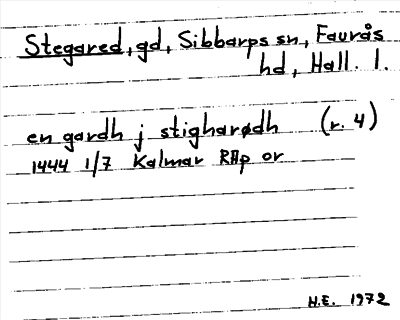 Stegared, gd, Sibbarps sn, Faurås
hd, Hall. l.
en gardh j stigharødh (r. 4)
1444 1/7 Kalmar RAp or
H.E. 1972